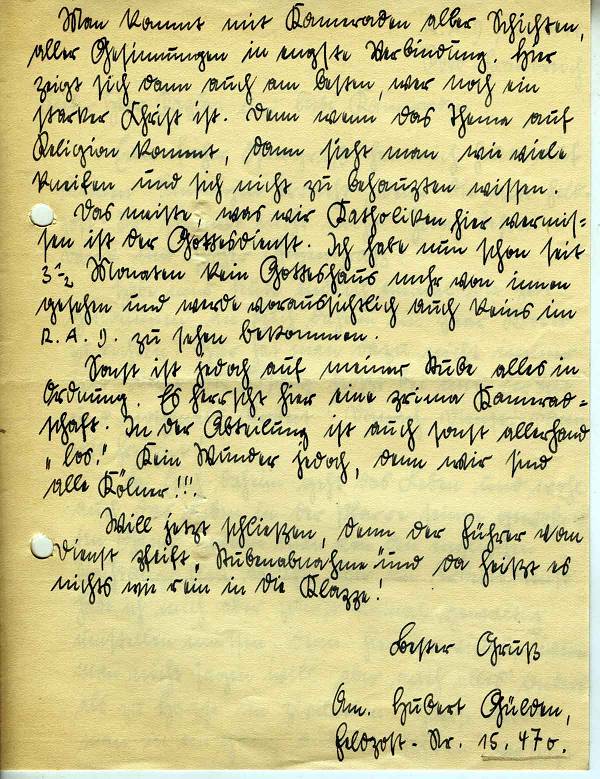 Man kommt mit Kameraden aller Schichten,
aller Gesinnungen in engste Verbindung. Hier
zeigt sich dann auch am besten, wer noch ein
starker Christ ist. Denn wenn das Thema auf
Religion kommt, dann sieht man wie viele
kneifen und sich nicht zu behaupten wissen.
Das meiste, was wir Katholiken hier vermis=
sen ist der Gottesdienst. Ich habe nun schon seit
3 1/2 Monaten kein Gotteshaus mehr von innen
gesehen und werde voraussichtlich auch keins im
R. A. D. zu sehen bekommen.
Sonst ist jedoch auf meiner Stube alles in
Ordnung. Es herrscht hier eine prima Kamerad=
schaft. In der Abteilung ist auch sonst allerhand
"los." Kein Wunder jedoch, denn wir sind
alle Kölner!!!
Will jetzt schließen, denn der Führer vom
Dienst pfeift „Stubenabnahme" und da heißt es
nichts wie rein in die Klappe!
Bester Gruß
Am. Hubert Gülden,
Feldpost-Nr. 15.470.